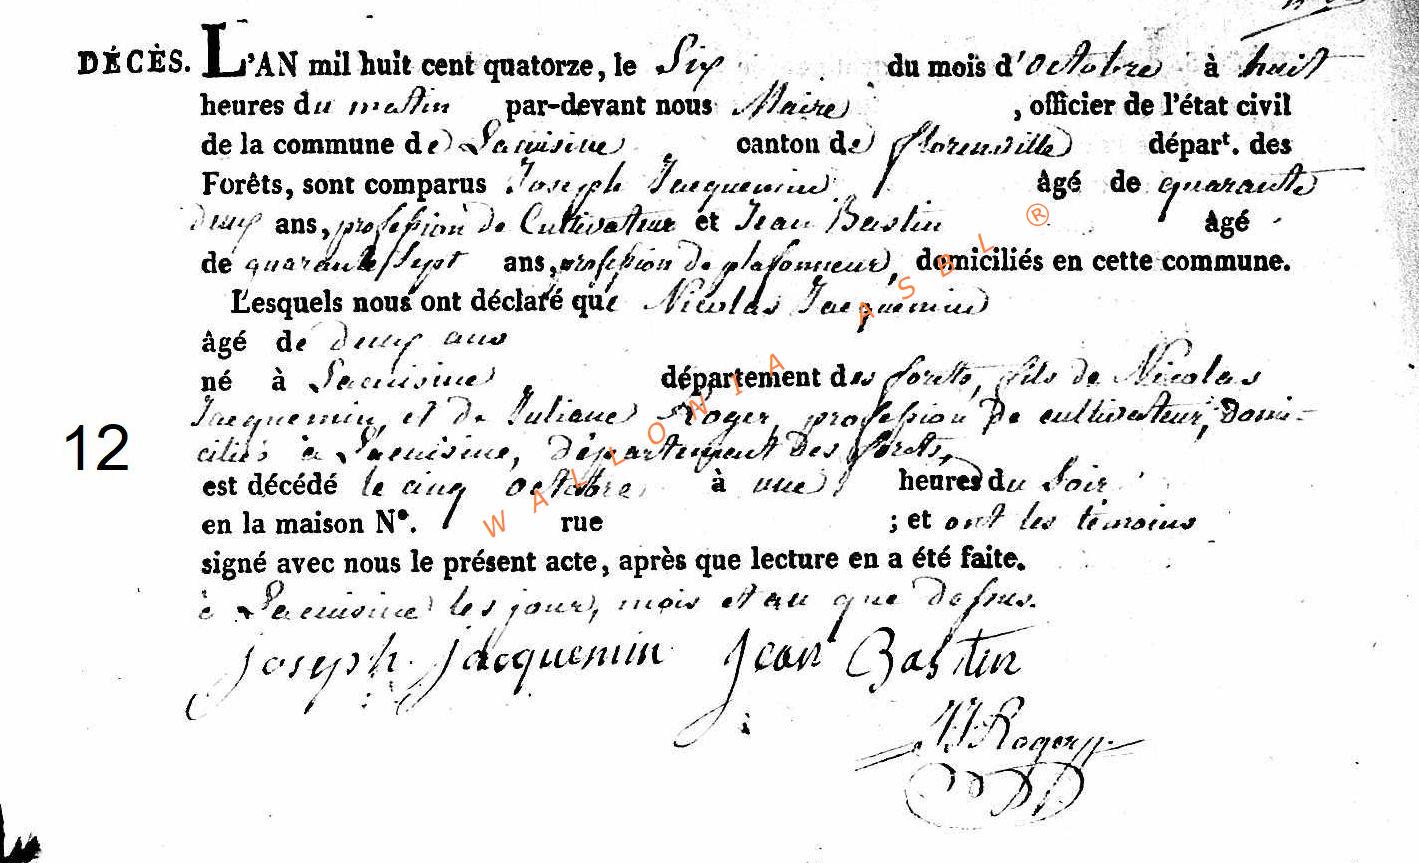 DÉCÈS. L'AN mil huit cent quatorze, le Six du moïs d'octobre à huit
heures du matin par-devant nous Maire , officier de l'état civil
de la commune de Lacuisine canton de florenville départ. des
Forêts, sont comparus Joseph Jacquemin âgé de quarante
deux ans, profession de Cultivateur et Jean Bastin âgé
de quarante Sept ans, profession de plafonneur, domiciliés en cette commune.
Lesquels nous ont déclaré que Nicolas Jacquemin
âgé de deux ans
né à Lacuisine, département des forets, fils de Nicolas
Jacquemin, et de Juliane Roger, profession de cultivateur, Domi-
ciliés à Lacuisine, département Des forets,
12
est décédé le cinq octobre à une heures du Soir
en la maison N°. rue ; et ont les témoins
signé avec nous le présent acte, après que lecture en a été faite.
à Lacuisine les jour, mois et an que dessus.
Joseph Jacquemin Jean Bastin
Roger
WALLONIA ASBL ®